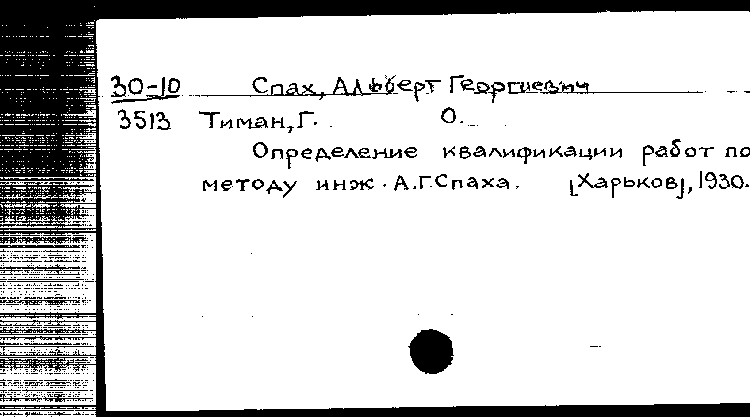 30-10 Спах, Альберт Георгиевич
3513 Тиман, Г. О.
Определение квалификации работ по
методу инж. А.Г.Спаха. [Харьков], 1930.